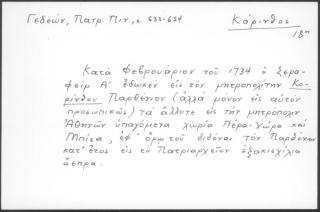 Γεδεών, Πατρ. Πιν., σ. 633-634
Κόρινθος
18η
Κατά Φεβρουάριον τοῦ 1734 ὁ Σερα-
φείμ Α' ἔδωκεν εἰς τόν μητροπολίτην Κο-
ρίνθου Παρθένιον (ἀλλά μόνον εἰς αὐτόν
προσωπικῶς) τά ἄλλοτε εἰς τήν μητρόπολιν
Ἀθηνῶν ὑπαγόμενα χωρία Πέρα-Χώρα καί
Μπίσα, ἐφ' ὅρῳ τοῦ διδόναι τόν Παρθένιον
κατ' ἔτος εἰς τό Πατριαρχεῖον ἑξακισχίλια
ἄσπρα.